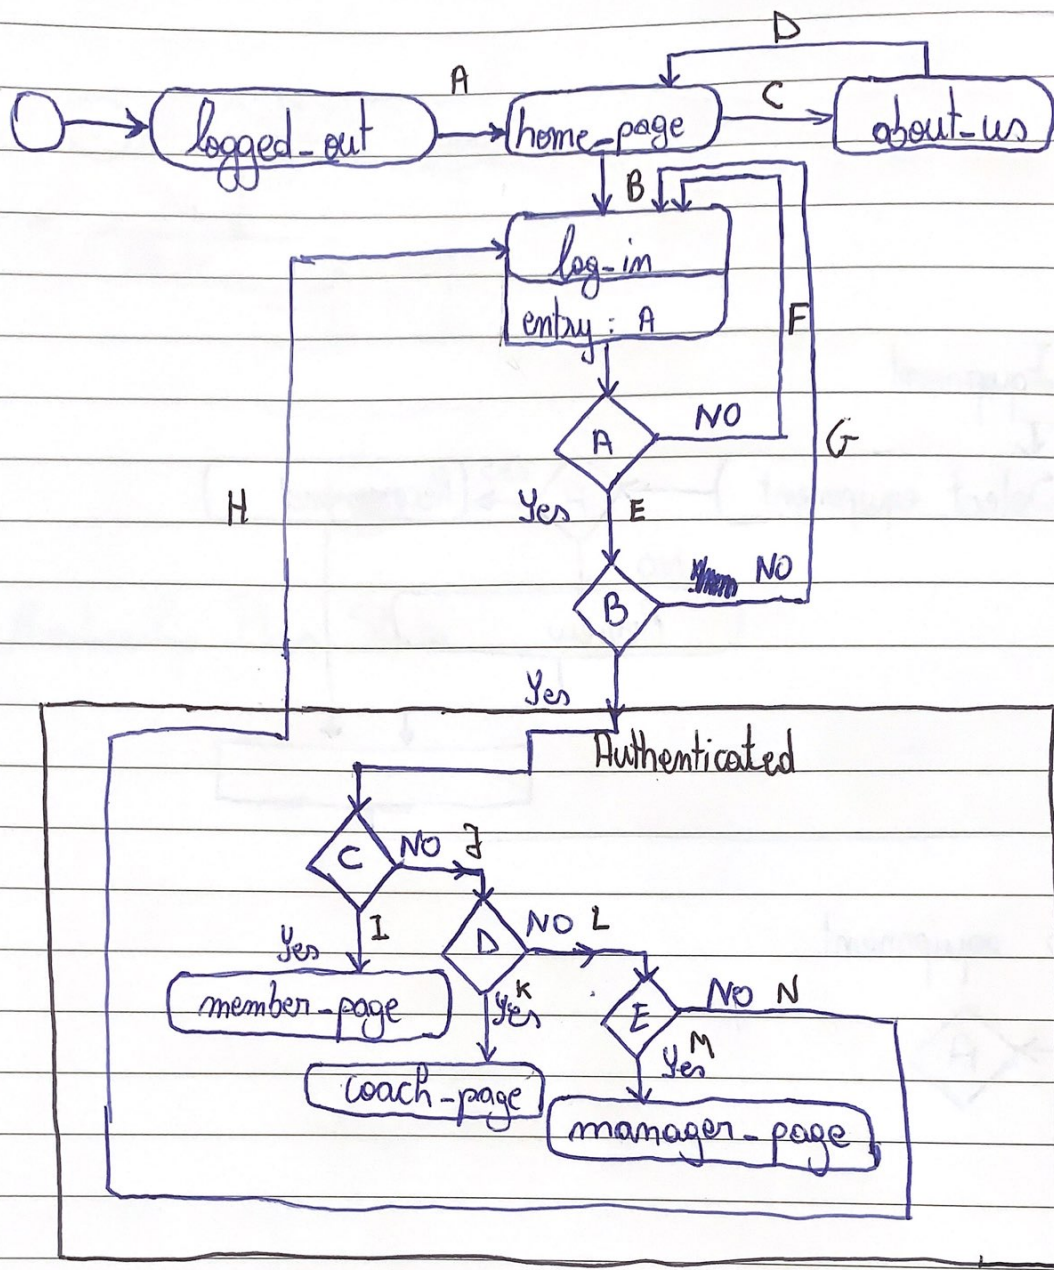 D
A
C
logged_out
home_page
about_us
B
log_in
entry : A
F
A
NO
G
H
Yes
E
B
NO
Yes
Authenticated
C
NO J
Yes
I
D
NO L
member_page
K
Yes
E
NO N
M
Yes
coach_page
manager_page